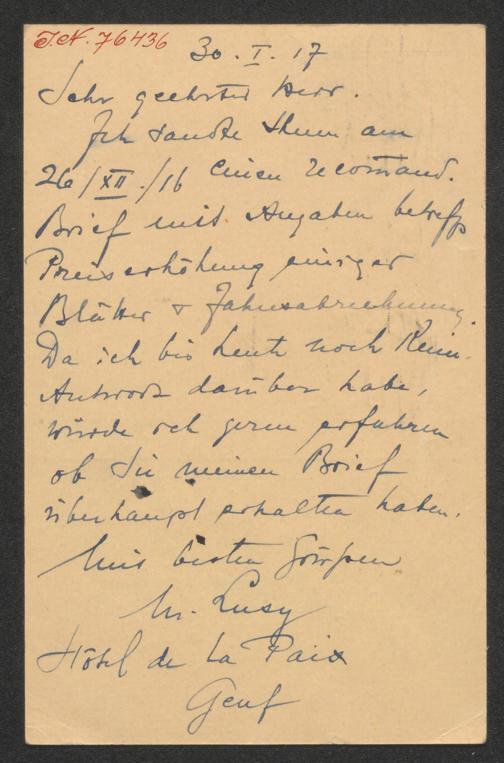 I.N. 76436
30. I. 17
Sehr geehrter Herr.
Ich sandte Ihnen am
26/XII./16 einen recomand.
Brief mit Angaben betreffs
Preiserhöhung einiger
Blätter + Jahresabrechnung.
Da ich bis heute noch kein.
Antwort darüber habe,
würde ich gern erfahren
ob Sie meinen Brief
überhaupt erhalten haben.
Mit besten Grüssen
M. Lusy
Hôtel de La Paix
Genf